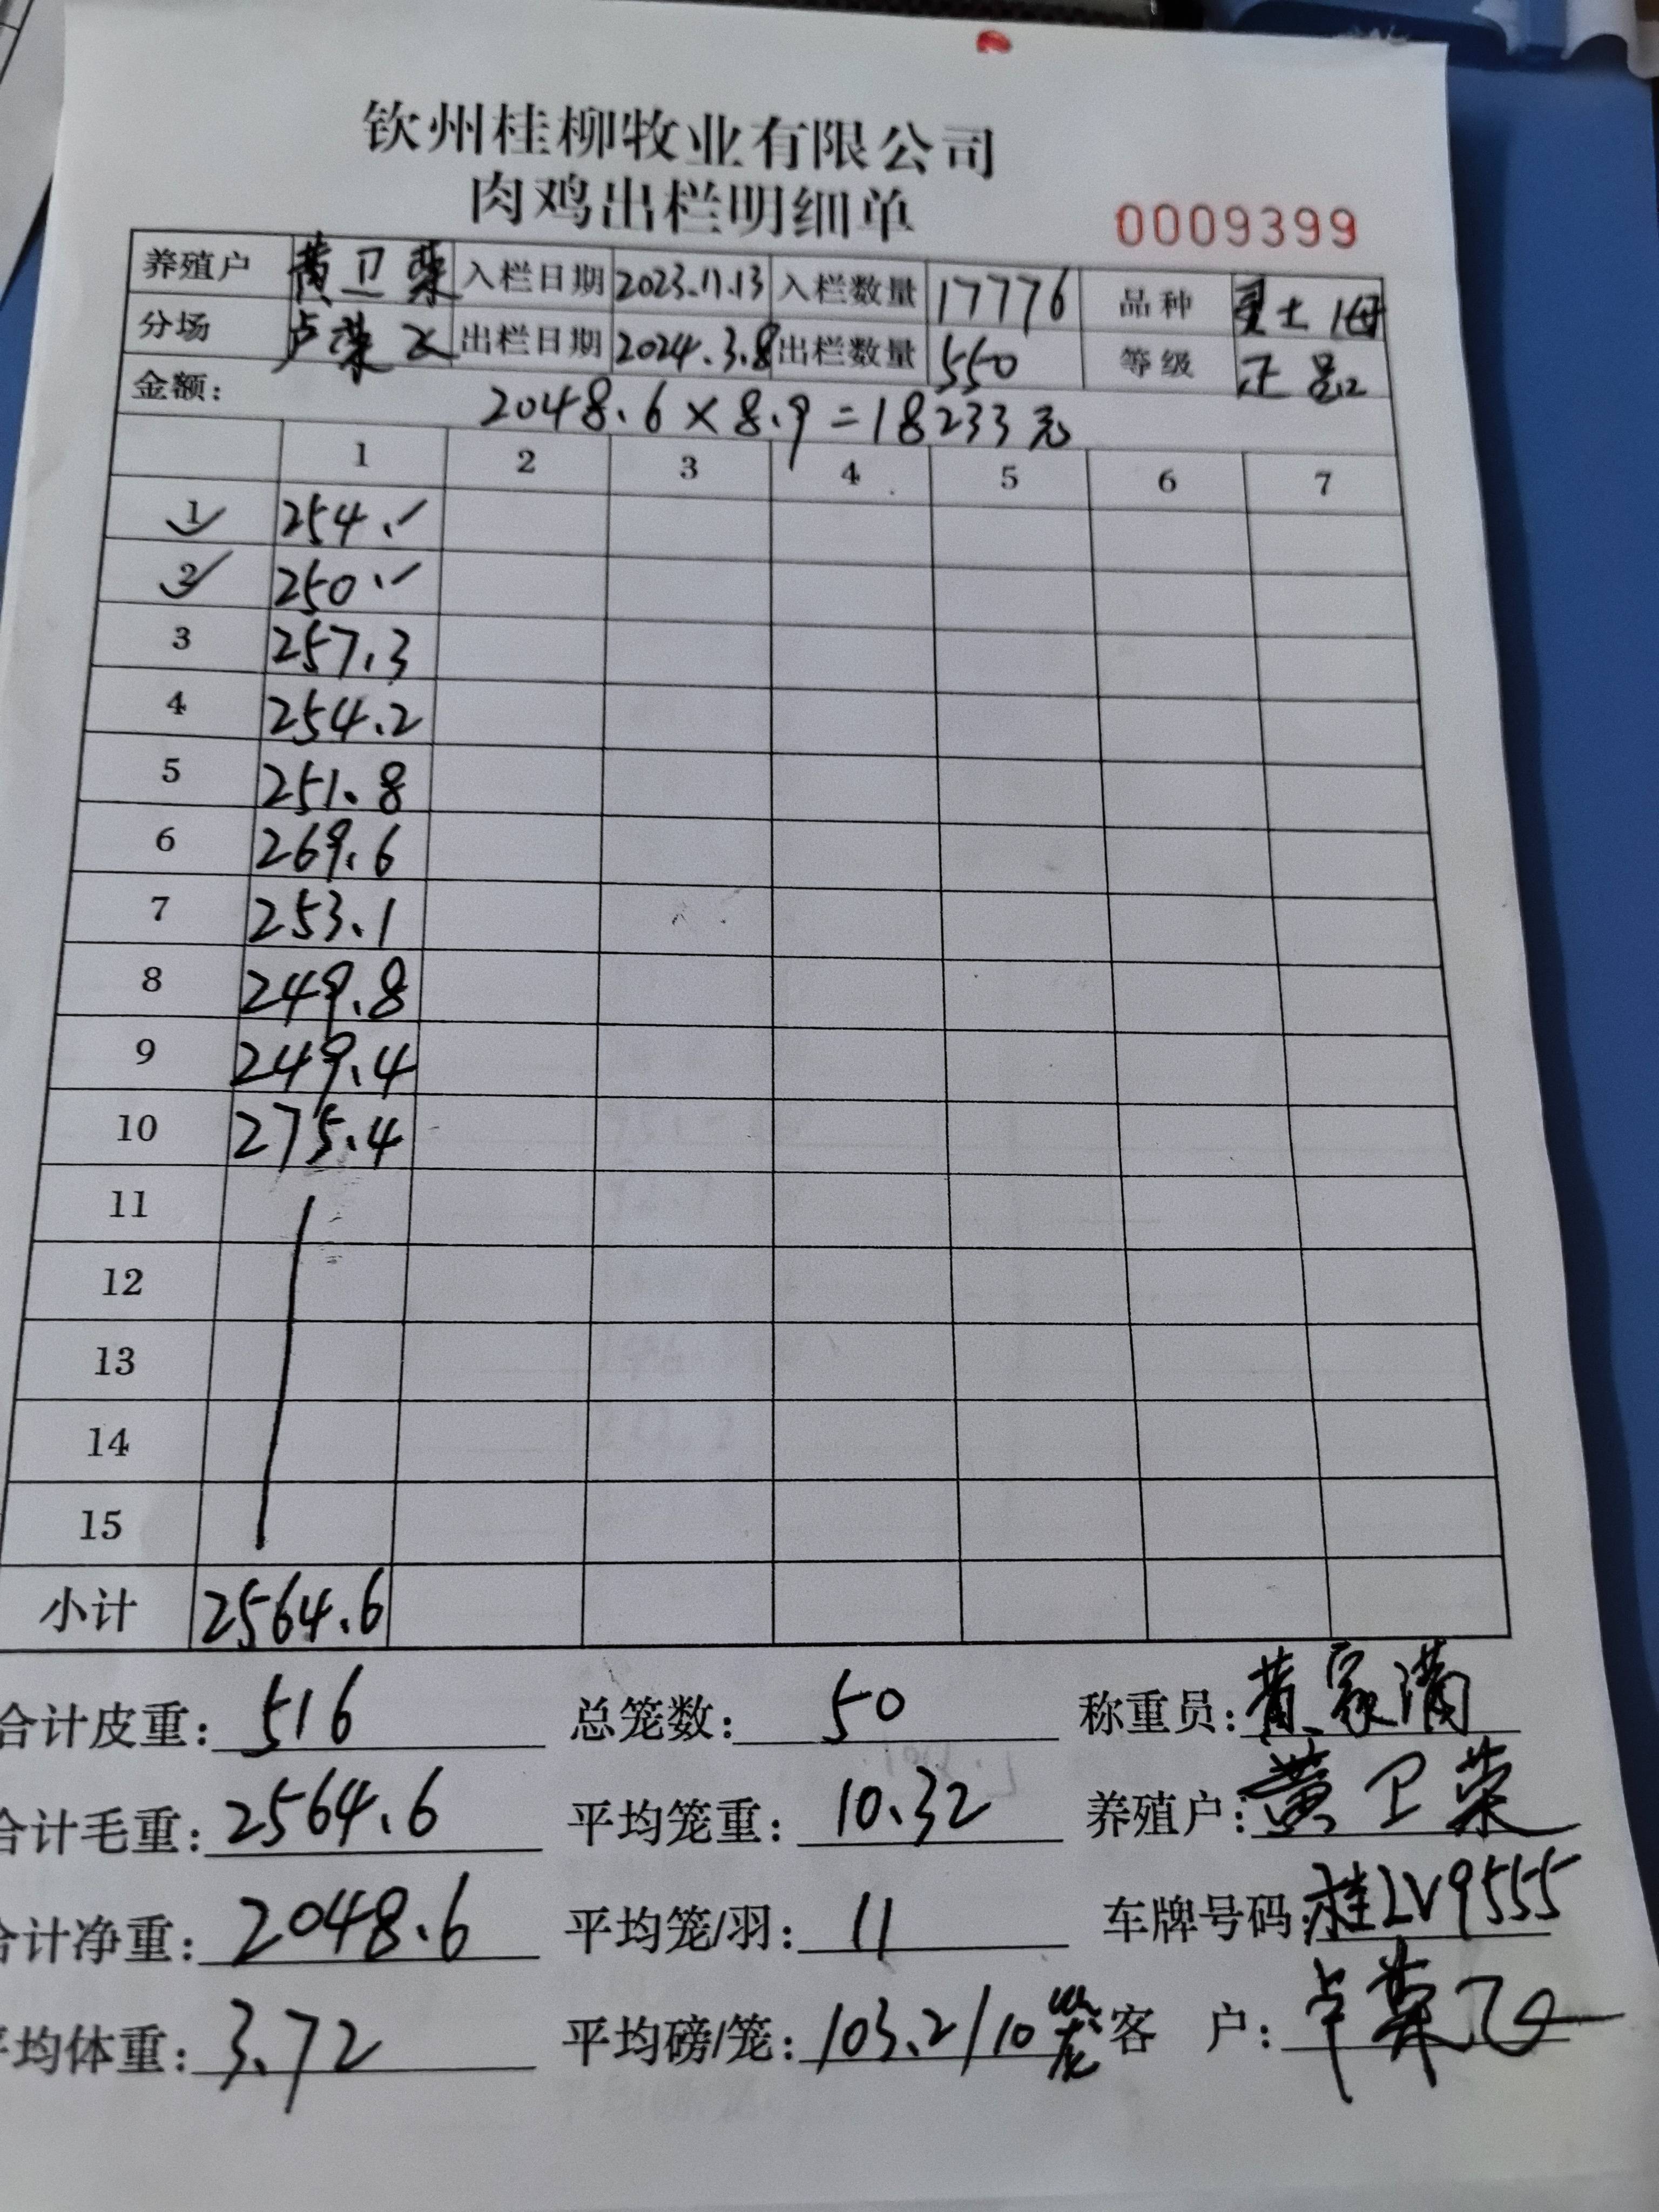 钦州桂柳牧业有限公司
肉鸡出栏明细单
0009399
养殖户 黄卫荣 入栏日期 2023.11.13 入栏数量 17776 品种
分场 卢荣飞 出栏日期 2024.3.8 出栏数量 550 等级 正品
金额: 2048.6×8.9=18233元
1 2 3 4 5 6 7
1 254.
2 250.
3 257.3
4 254.2
5 251.8
6 269.6
7 253.1
8 249.8
9 249.4
10 275.4
11
12
13
14
15
小计 2564.6
合计皮重: 516 总笼数: 50 称重员: 黄家满
合计毛重: 2564.6 平均笼重: 10.32 养殖户: 黄卫荣
合计净重: 2048.6 平均笼/羽: 11 车牌号码: 桂LV9555
平均体重: 3.72 平均磅/笼: 103.2/10笼 客 户: 卢荣飞